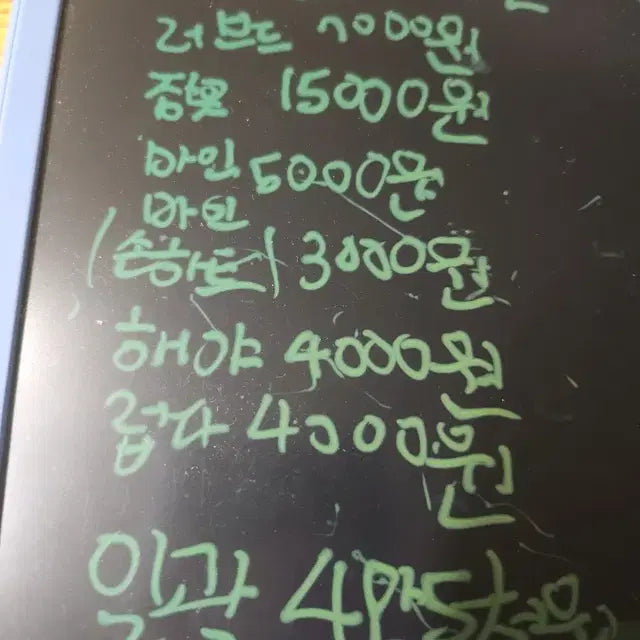 러브드 7000원
잠뜰 15000원
마인 5000원
마인
(손하트) 3000원
해야 4000원
럽다 4000원
일괄 4만